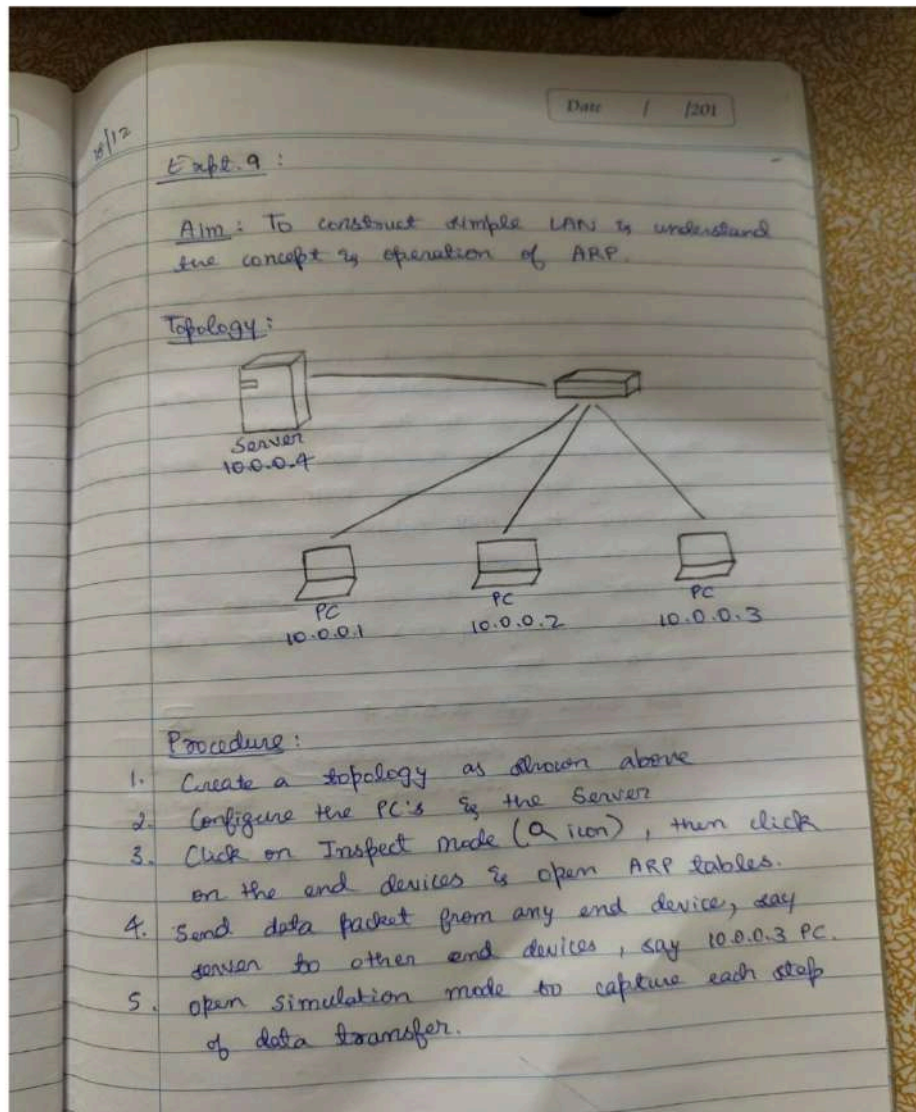 Date / /201
18/12
Expt. 9 :
Aim : To construct simple LAN & understand
the concept & operation of ARP.
Topology :
Server
10.0.0.4
PC
10.0.0.1
PC
10.0.0.2
PC
10.0.0.3
Procedure :
1. Create a topology as shown above
2. Configure the PC's & the Server
3. Click on Inspect mode ( icon), then click
on the end devices & open ARP tables.
4. Send data packet from any end device, say
server to other end devices, say 10.0.0.3 PC.
5. open simulation mode to capture each step
of data transfer.